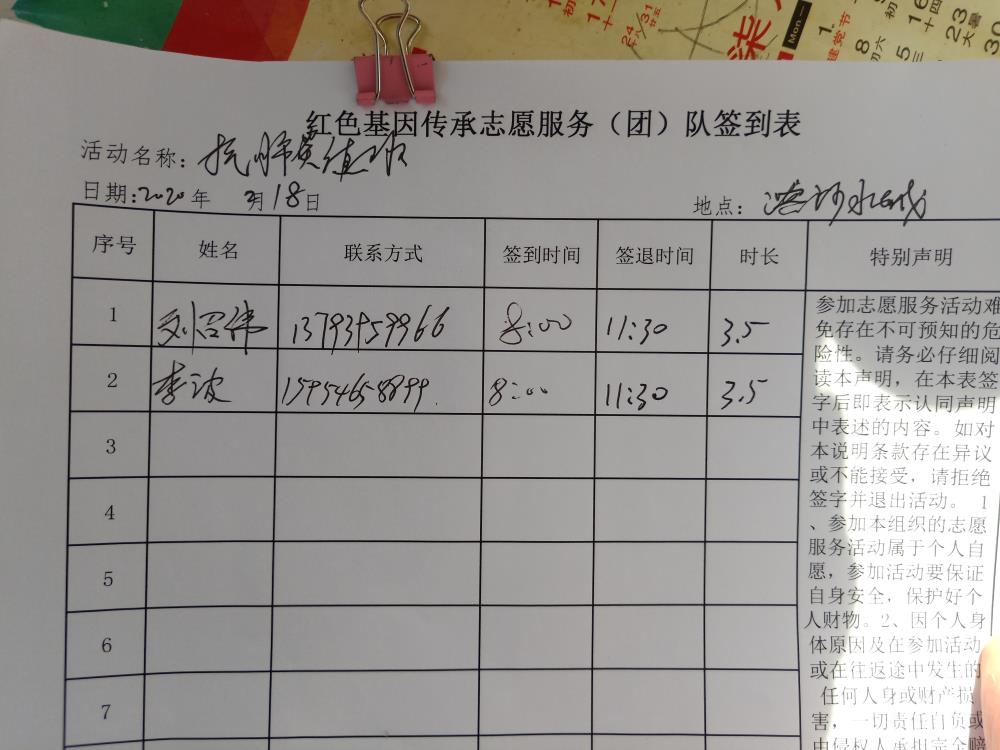 柒
Mon
建党节
大暑
红色基因传承志愿服务（团）队签到表
活动名称：抗肺炎值班
日期：2020年 2月18日 地点：
序号 姓名 联系方式 签到时间 签退时间 时长 特别声明
1 刘召伟 13793959966 8:00 11:30 3.5
2 李波 15954658899 8:00 11:30 3.5
3
4
5
6
7
参加志愿服务活动难
免存在不可预知的危
险性。请务必仔细阅
读本声明，在本表签
字后即表示认同声明
中表述的内容。如对
本说明条款存在异议
或不能接受，请拒绝
签字并退出活动。 1
、参加本组织的志愿
服务活动属于个人自
愿，参加活动要保证
自身安全，保护好个
人财物。2、因个人身
体原因及在参加活动
或在往返途中发生的
任何人身或财产损
害，一切责任自负或
由侵权人承担完全赔